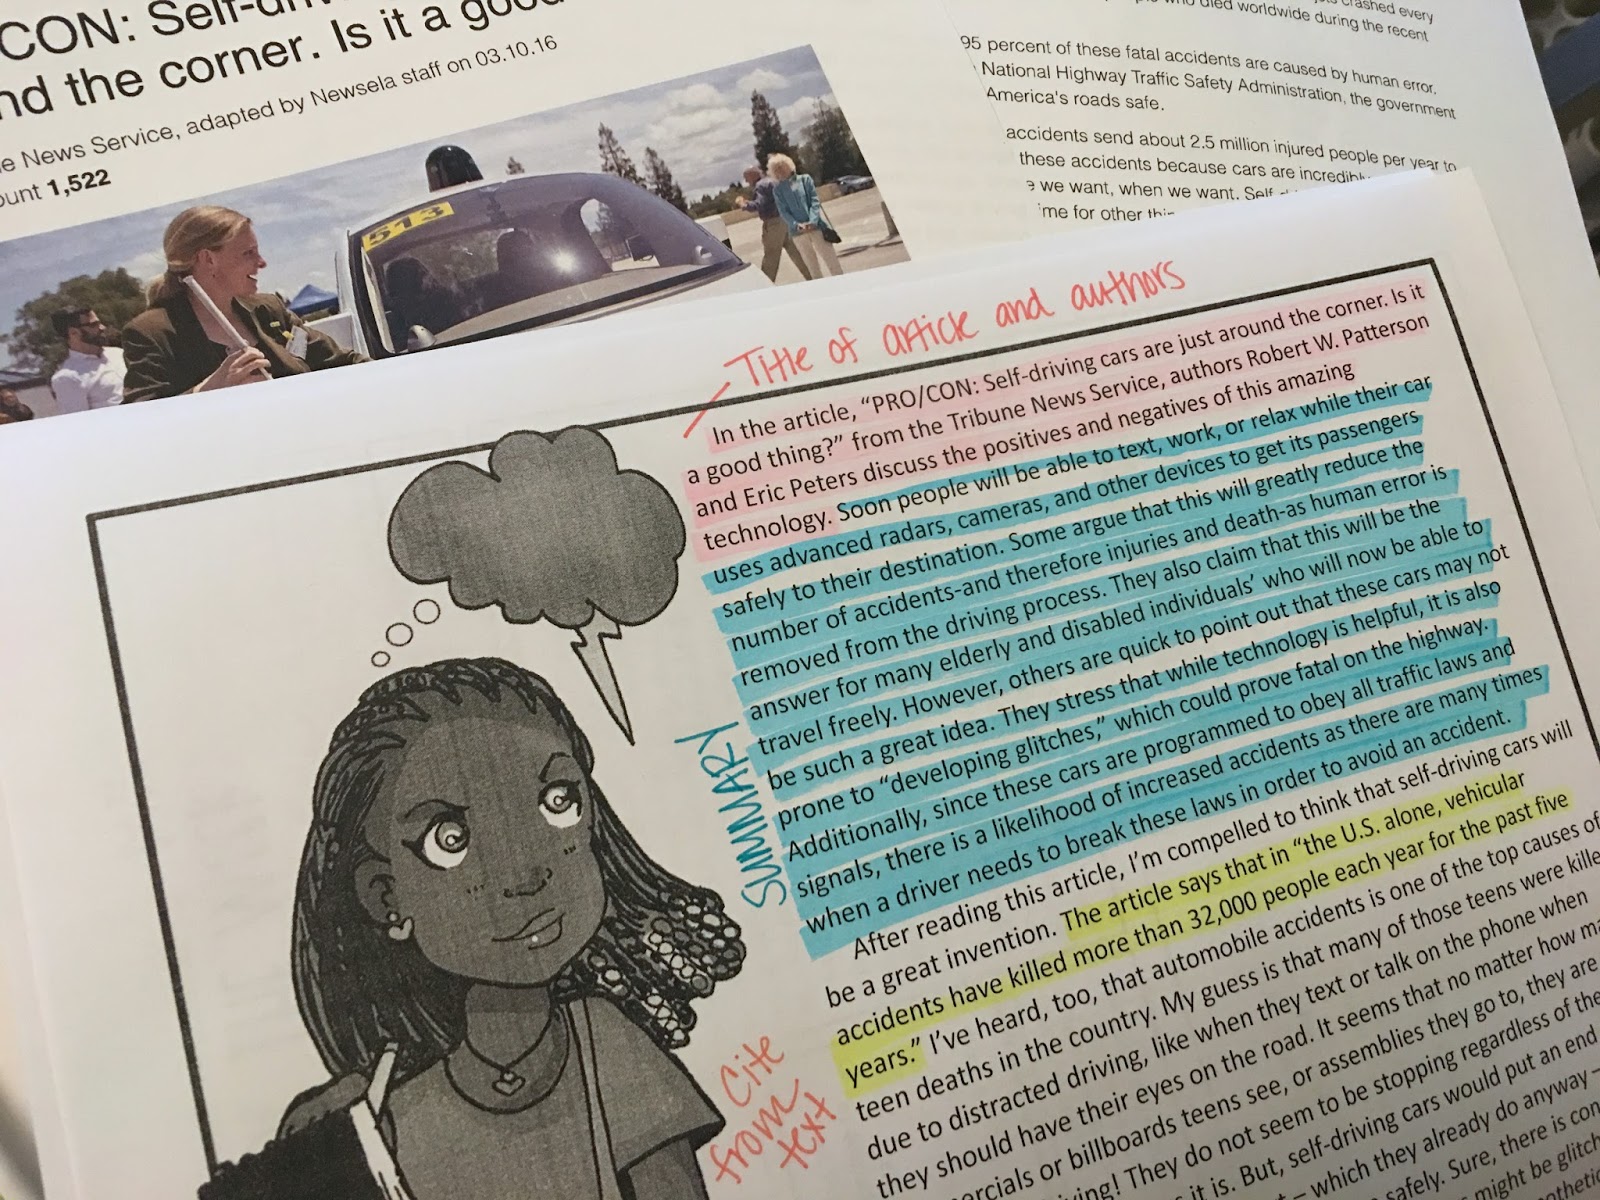 CON: Self-driv
nd the corner. Is it a good
e News Service, adapted by Newsela staff on 03.10.16
ount 1,522
513
crashed every
died worldwide during the recent
95 percent of these fatal accidents are caused by human error.
National Highway Traffic Safety Administration, the government
America's roads safe.
accidents send about 2.5 million injured people per year to
these accidents because cars are incredibly
we want, when we want. Self
ime for other thin
Title of article and authors
In the article, “PRO/CON: Self-driving cars are just around the corner. Is it
a good thing?” from the Tribune News Service, authors Robert W. Patterson
and Eric Peters discuss the positives and negatives of this amazing
technology. Soon people will be able to text, work, or relax while their car
uses advanced radars, cameras, and other devices to get its passengers
safely to their destination. Some argue that this will greatly reduce the
number of accidents-and therefore injuries and death-as human error is
removed from the driving process. They also claim that this will be the
answer for many elderly and disabled individuals’ who will now be able to
travel freely. However, others are quick to point out that these cars may not
be such a great idea. They stress that while technology is helpful, it is also
prone to “developing glitches,” which could prove fatal on the highway.
Additionally, since these cars are programmed to obey all traffic laws and
signals, there is a likelihood of increased accidents as there are many times
when a driver needs to break these laws in order to avoid an accident.
SUMMARY
After reading this article, I’m compelled to think that self-driving cars will
be a great invention. The article says that in “the U.S. alone, vehicular
accidents have killed more than 32,000 people each year for the past five
years.” I’ve heard, too, that automobile accidents is one of the top causes of
teen deaths in the country. My guess is that many of those teens were kille
due to distracted driving, like when they text or talk on the phone when
they should have their eyes on the road. It seems that no matter how ma
ercials or billboards teens see, or assemblies they go to, they are
ving! They do not seem to be stopping regardless of the
it is. But, self-driving cars would put an end
– which they already do anyway –
safely. Sure, there is con
might be glitch
Cite
from
text